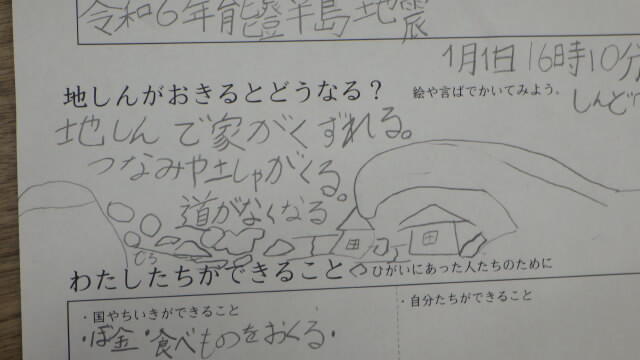 令和6年能登半島地震
1月1日 16時10分
地しんがおきるとどうなる? 絵や言ばでかいてみよう。
しんど7
地しんで家がくずれる。
つなみや土しゃがくる。
道がなくなる
わたしたちができること ひがいにあった人たちのために
・国やちいきができること
・自分たちができること
・ぼ金・食べものをおくる・